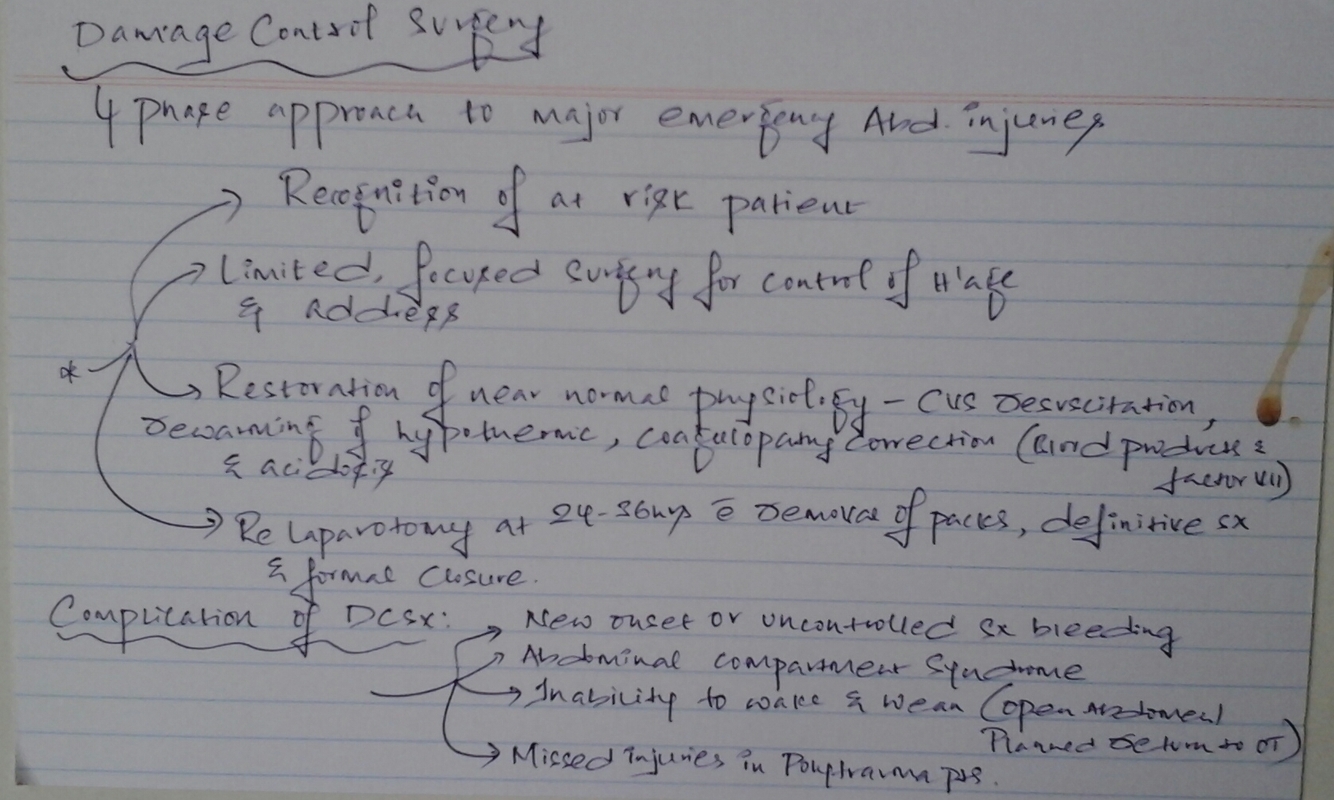 Damage Control Surgery
4 phase approach to major emergency Abd. injuries
Recognition of at risk patient
Limited, focused surgery for control of H'age
& address
* Restoration of near normal physiology - CVS resuscitation,
rewarming of hypothermic, coagulopathy correction (Blood products &
& acidosis factor VII)
Re Laparotomy at 24-36hrs c̄ removal of packs, definitive sx
& formal closure.
Complication of DCSx: New onset or uncontrolled sx bleeding
Abdominal compartment Syndrome
Inability to wake & wean (open Abdomen/
Planned return to OT)
Missed injuries in Polytrauma pts.